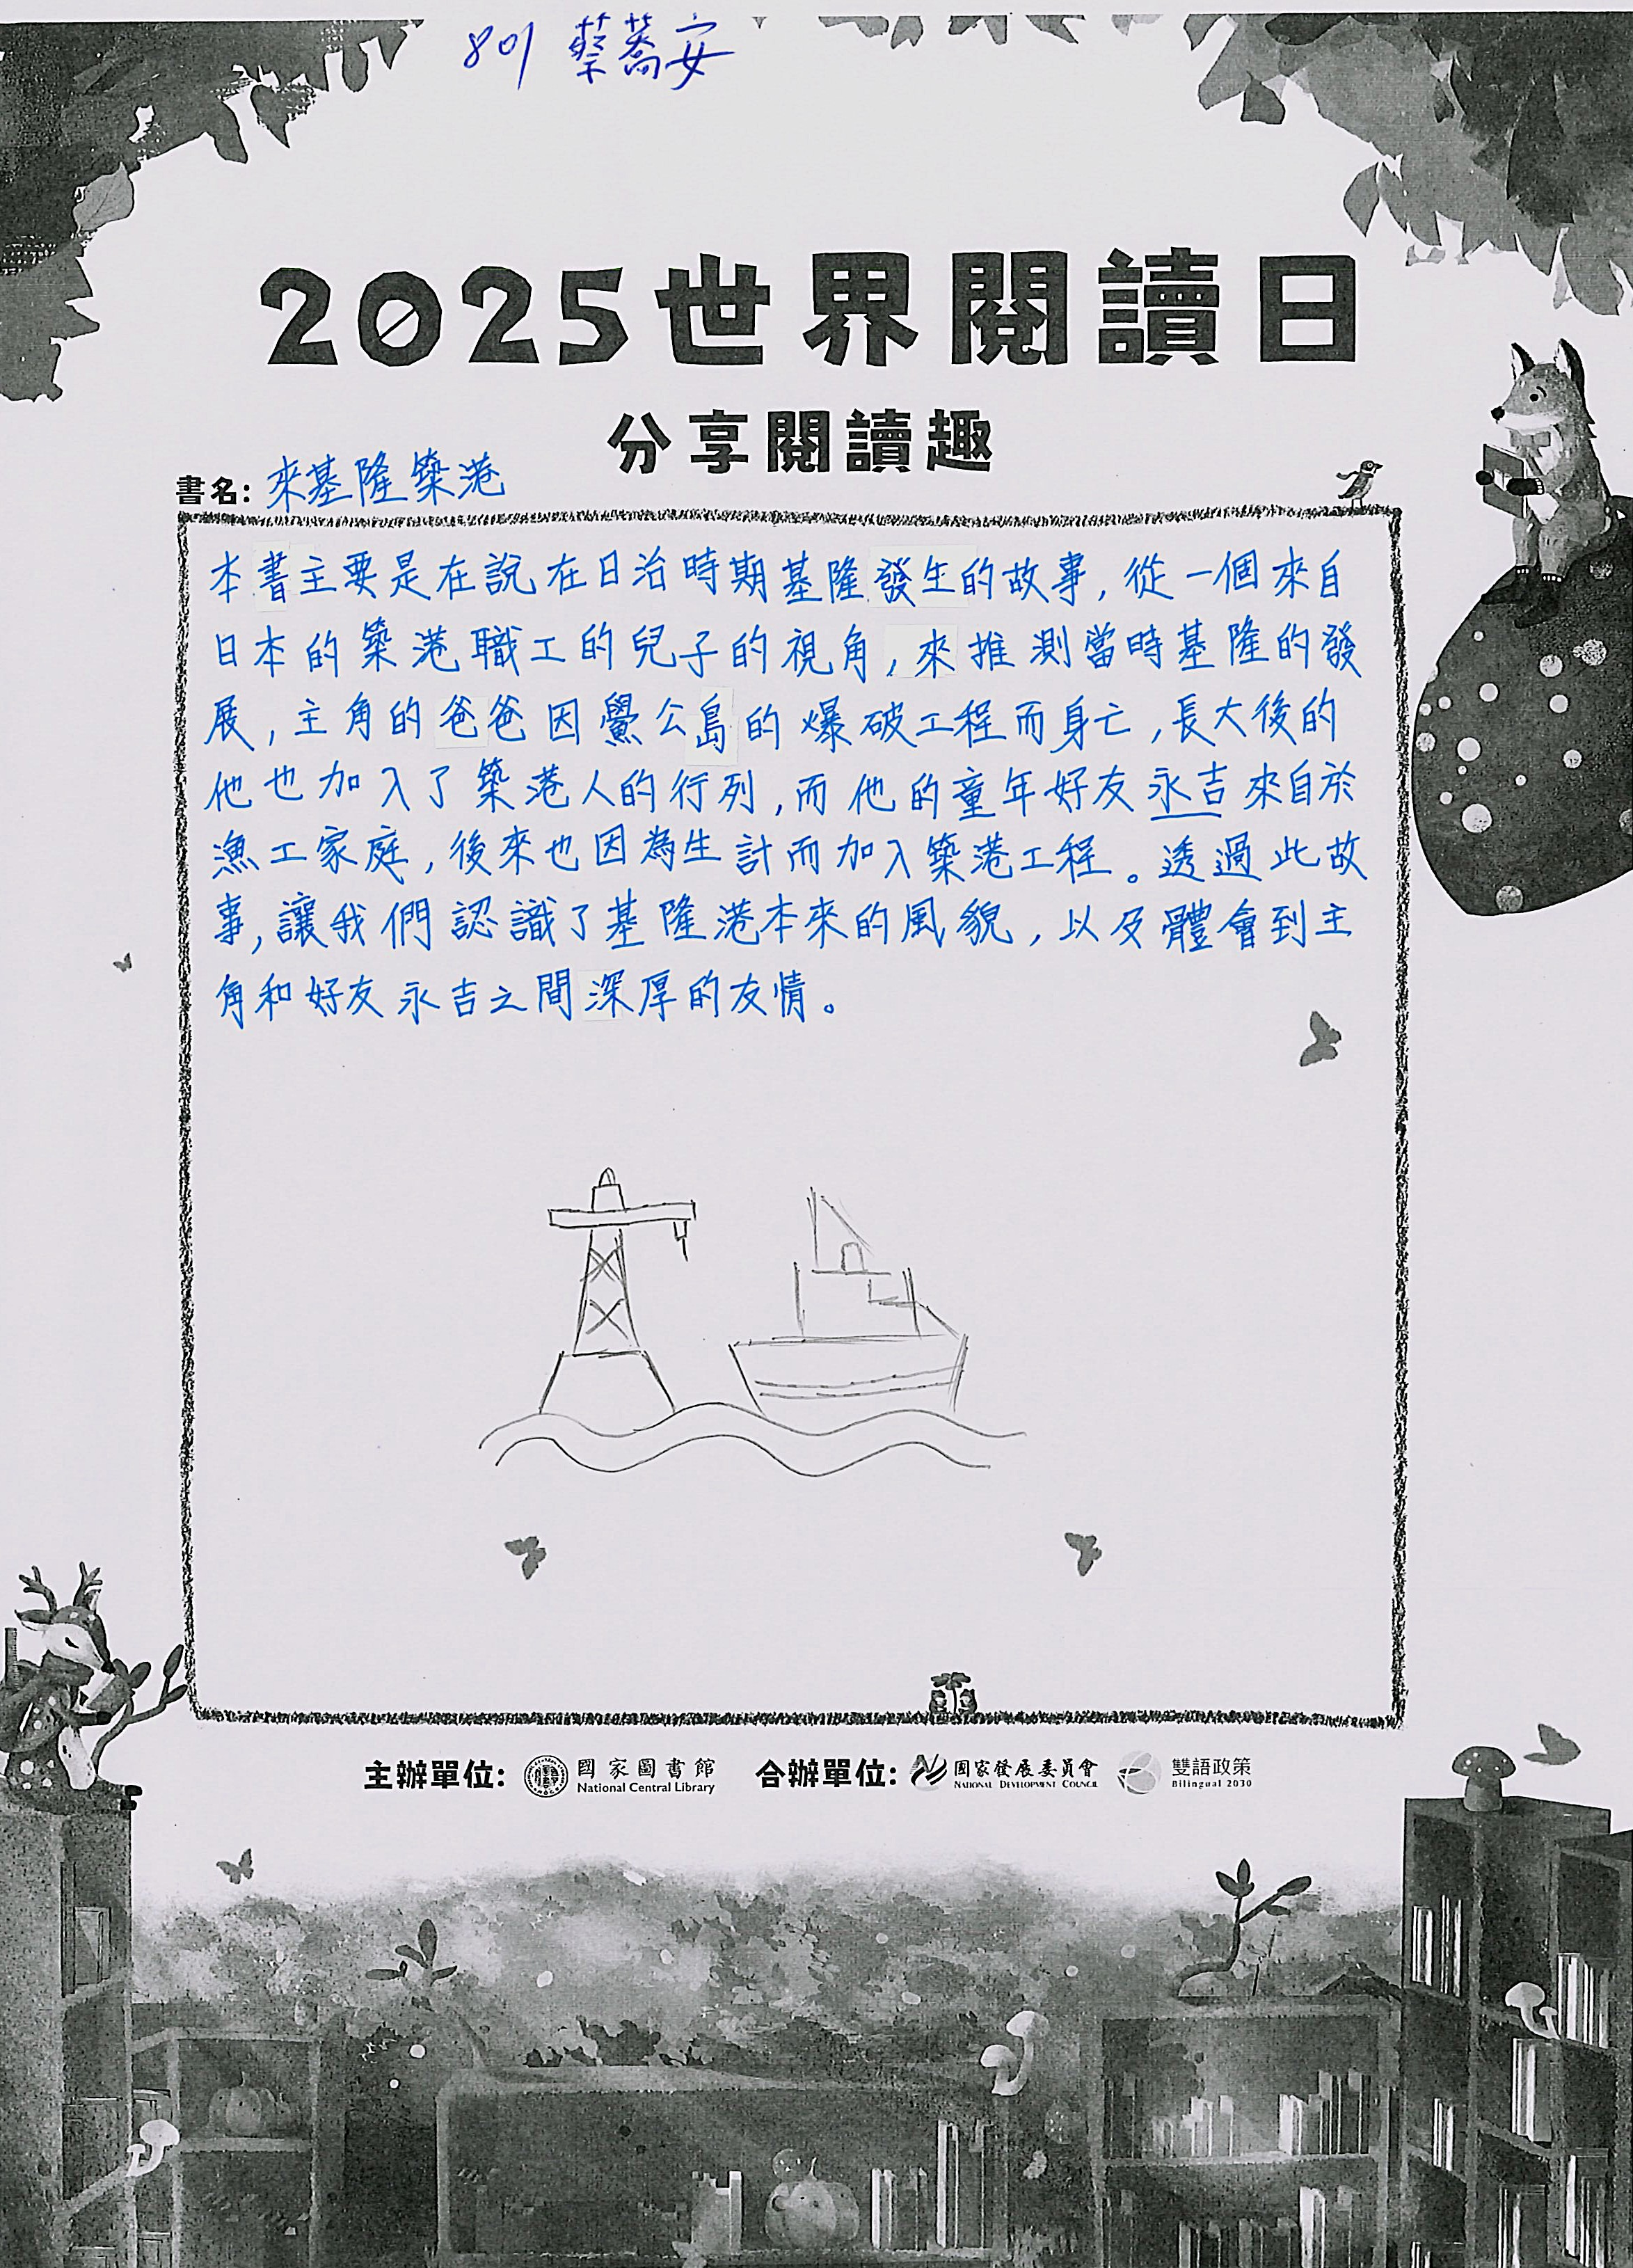 801 蔡蕎安
2025世界閱讀日
分享閱讀趣
書名: 來基隆築港
本書主要是在說在日治時期基隆發生的故事,從一個來自
日本的築港職工的兒子的視角,來推測當時基隆的發
展,主角的爸爸因鱟公島的爆破工程而身亡,長大後的
他也加入了築港人的行列,而他的童年好友永吉來自於
漁工家庭,後來也因為生計而加入築港工程。透過此故
事,讓我們認識了基隆港本來的風貌,以及體會到主
角和好友永吉之間深厚的友情。
主辦單位: 國家圖書館 National Central Library 合辦單位: 國家發展委員會 NATIONAL DEVELOPMENT COUNCIL 雙語政策 Bilingual 2030